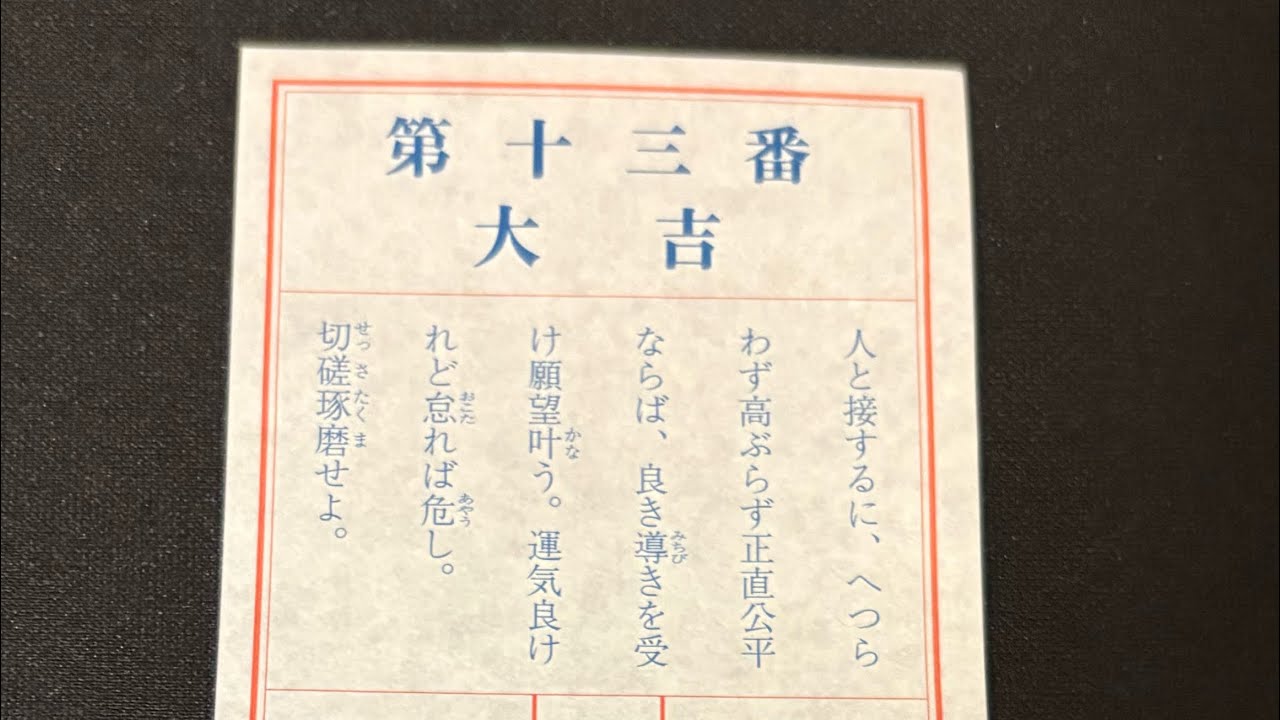 第十三番
大吉
人と接するに、へつら
わず高ぶらず正直公平
ならば、良き導きを受
け願望叶う。運気良け
れど怠れば危し。
切磋琢磨せよ。
みちび
かな
おこた
あやう
せっさたくま